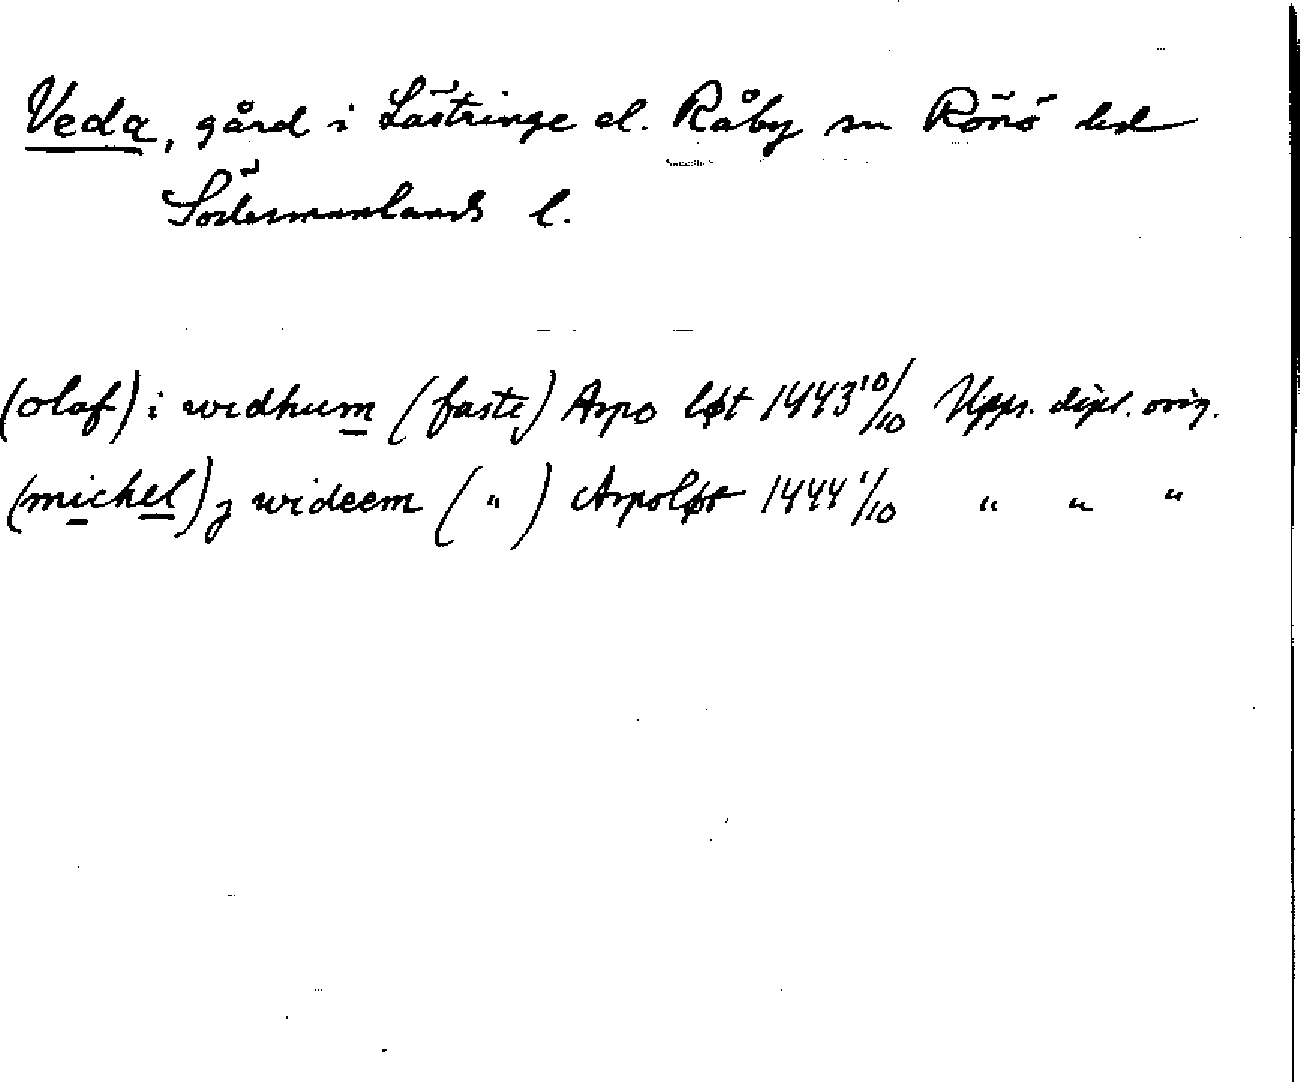 Veda, gård i Lästringe el. Råby sn Rönö hd
Södermanlands l.
(olaf) i widhum (faste) Arpo løt 1443 10/10 Upps. dipl. orig.
(michel) j wideem ( " ) Arpoløt 1444 1/10 " " "